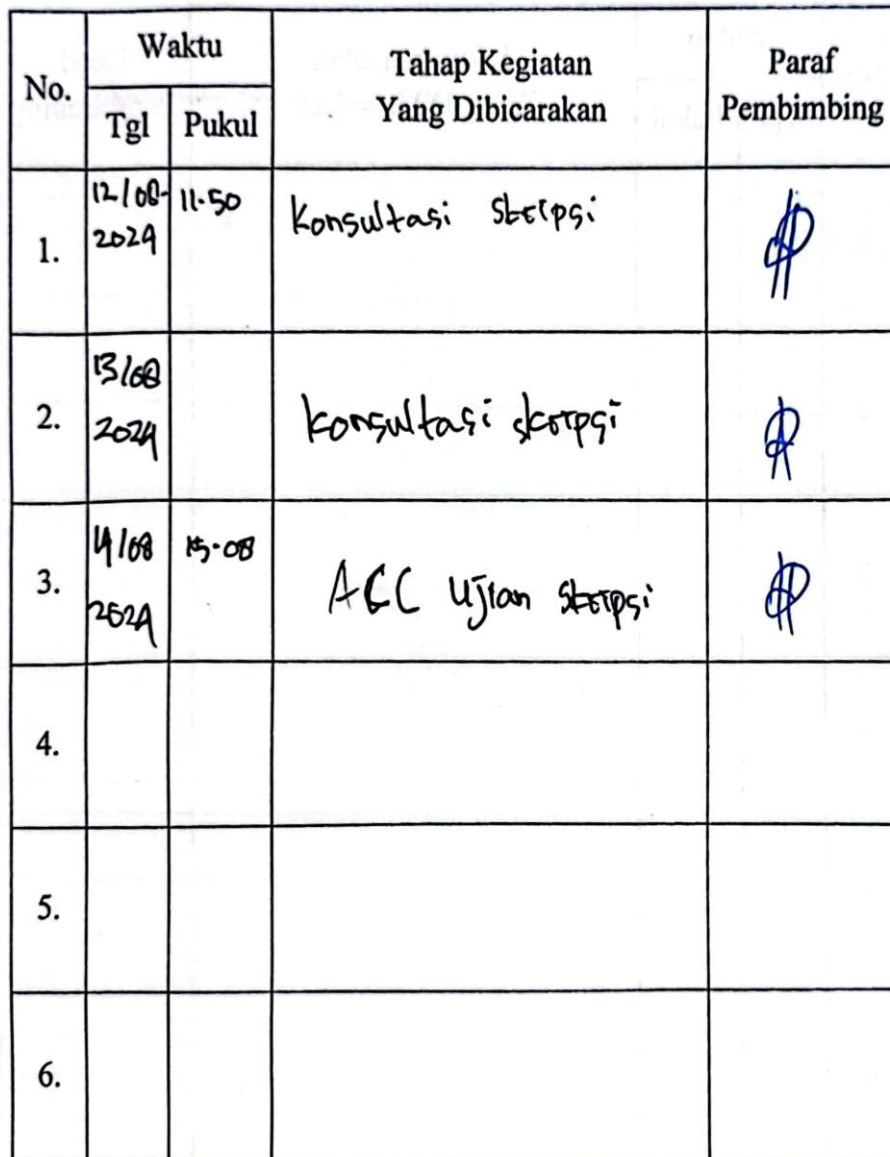 No.
Waktu
Tgl
Pukul
Tahap Kegiatan
Yang Dibicarakan
Paraf
Pembimbing
1.
12/08-
2024
11.50
Konsultasi Skripsi
2.
13/08
2024
Konsultasi skripsi
3.
14/08
2024
15.08
ACC Ujian Skripsi
4.
5.
6.